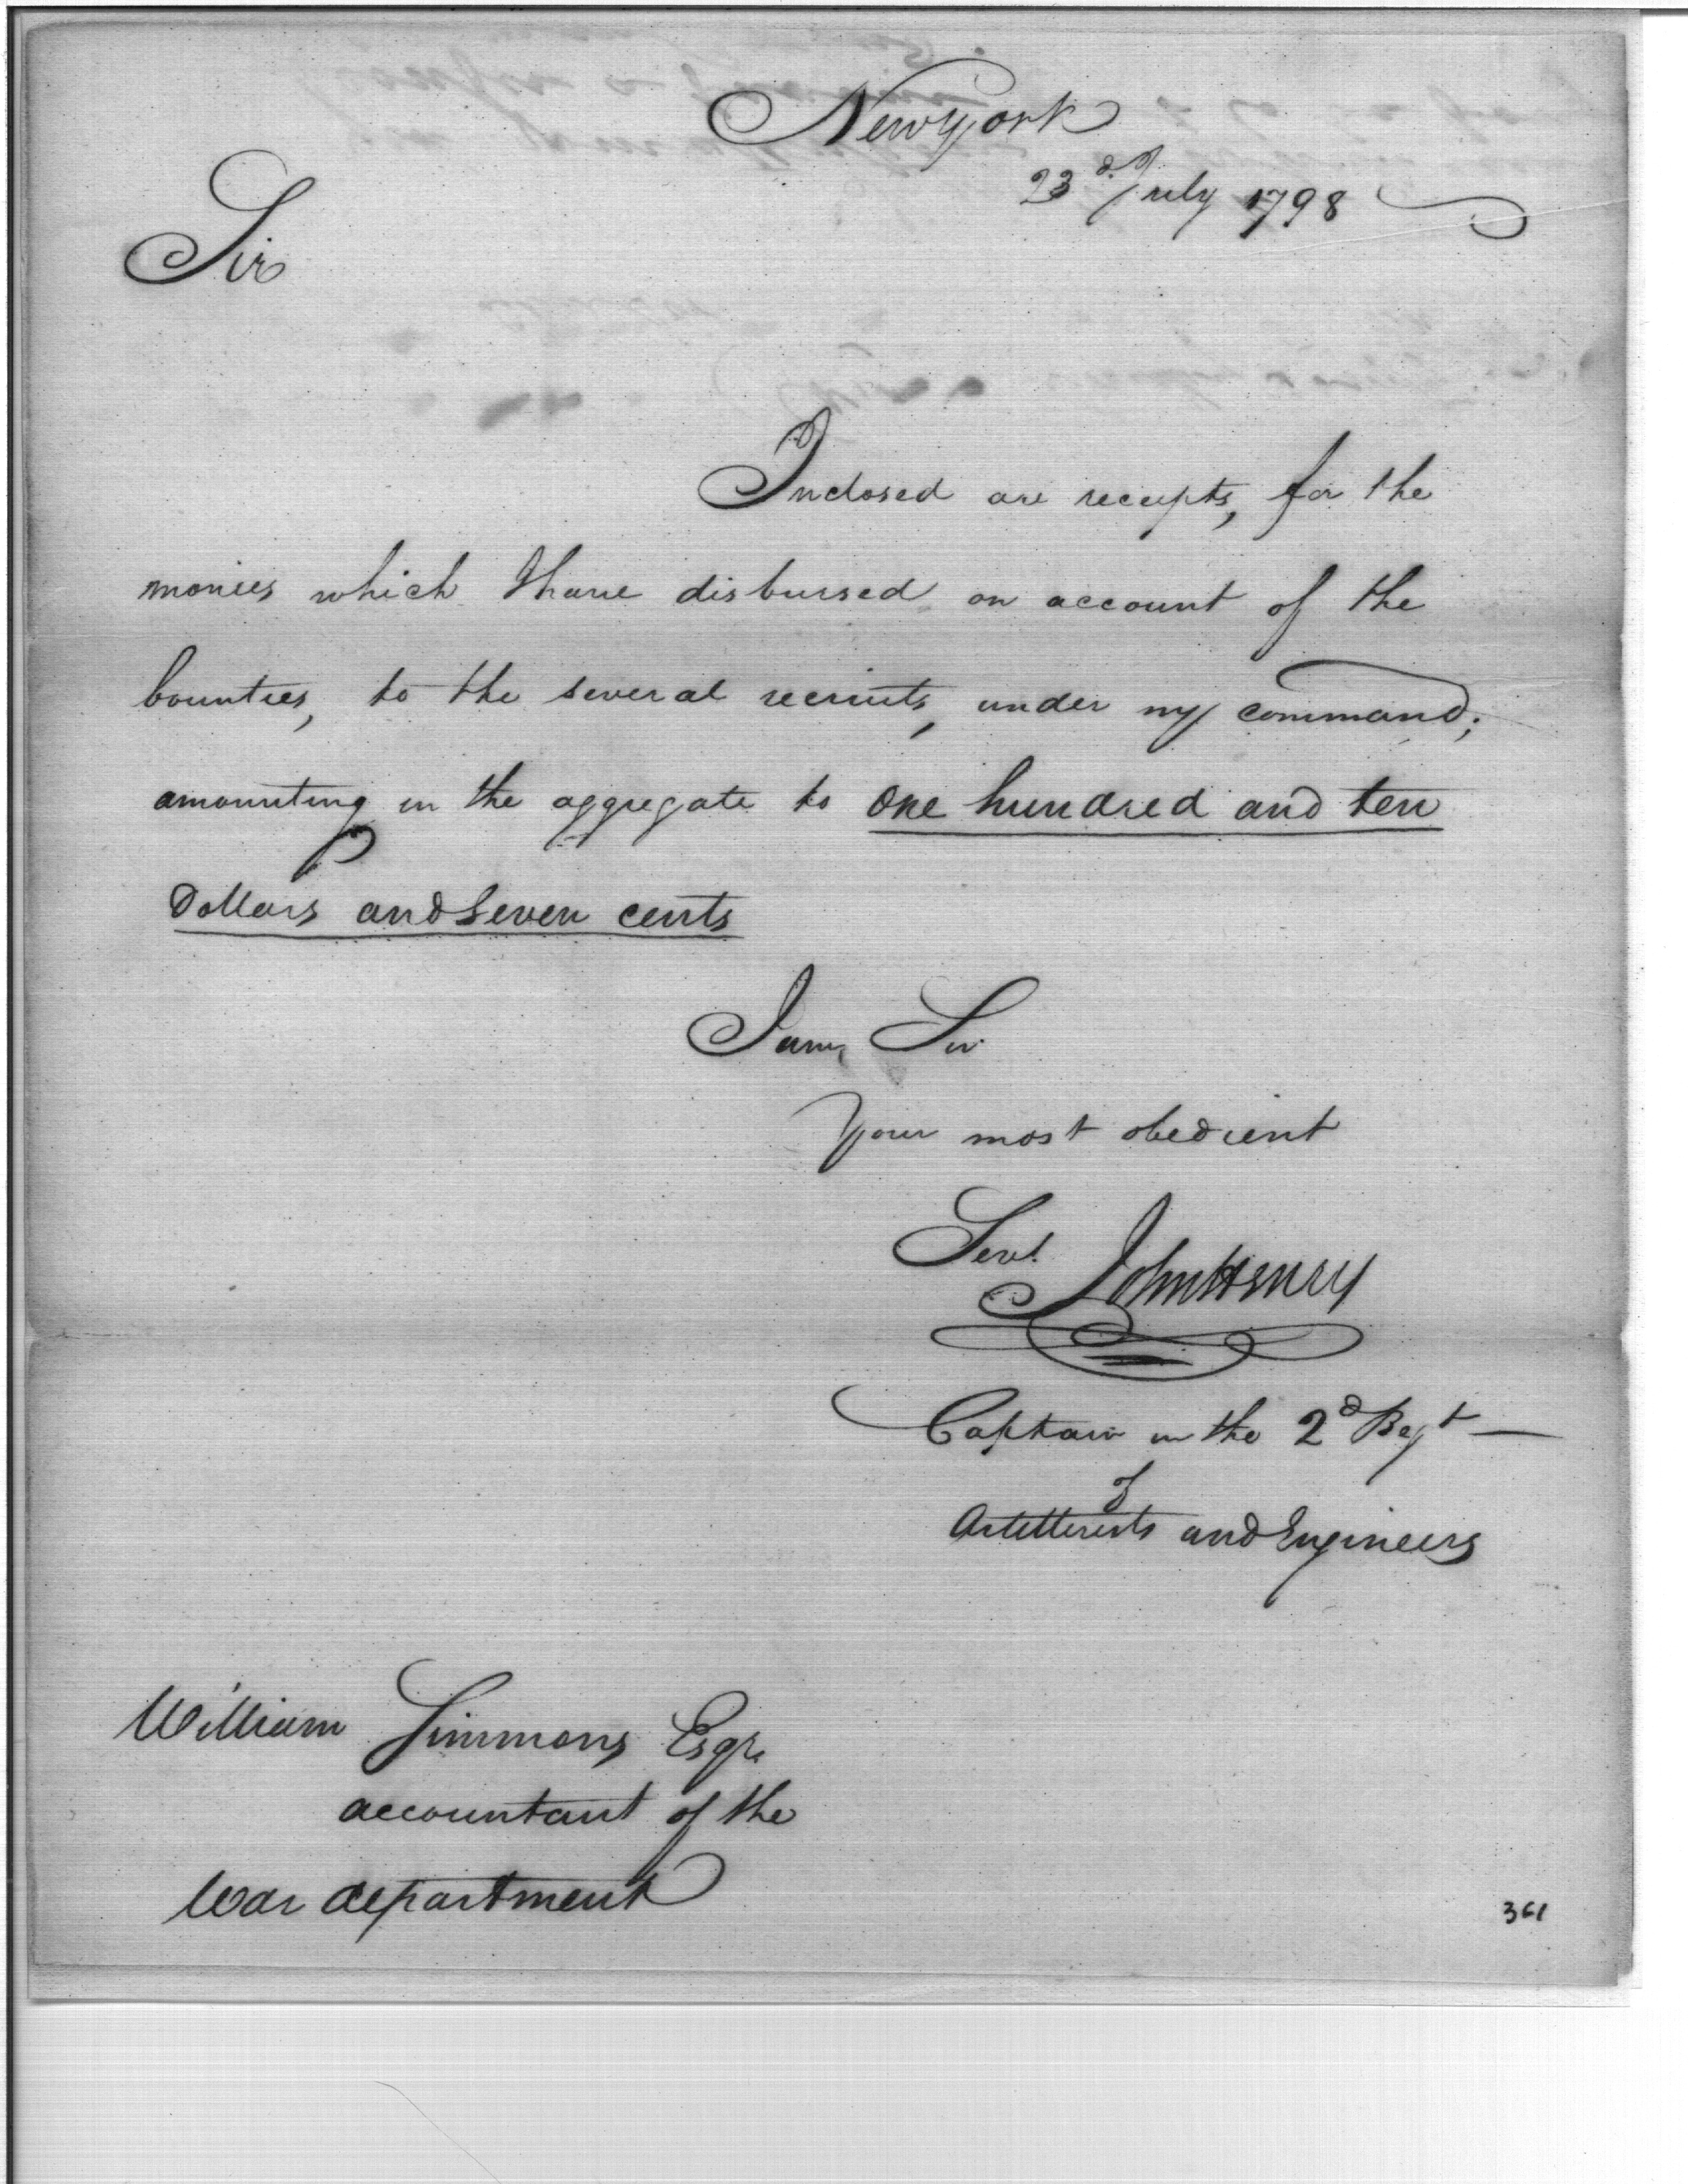 New York
23d. July 1798
Sir
Inclosed are receipts, for the
monies which I have disbursed on account of the
bounties, to the several recruits, under my command;
amounting in the aggregate to One hundred and ten
Dollars and Seven cents
I am, Sir
Your most obedient
Servt. John Henry
Captain in the 2d Regt
of
Artillerists and Engineers
William Simmons Esqr.
accountant of the
War department
361